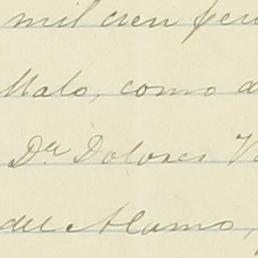 mil cien
Malo, como
Da. Dolores
del Alamo,